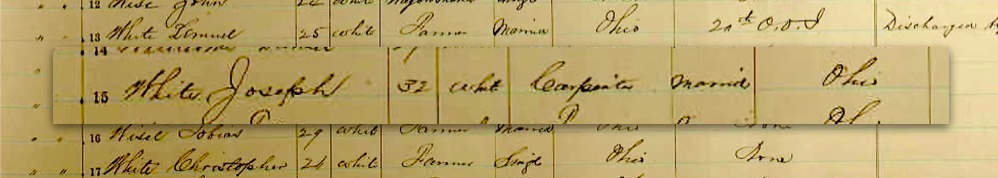 12 Wise John 24 white Wagonmaker Single
" " 13 White Lemuel 25 white Farmer Married Ohio 20th O.V.I Discharged
14
15 White Joseph 32 white Carpenter Married Ohio
" " 16 Tobias 29 white Farmer Married Ohio None
" " 17 White Christopher 24 white Farmer Single Ohio None